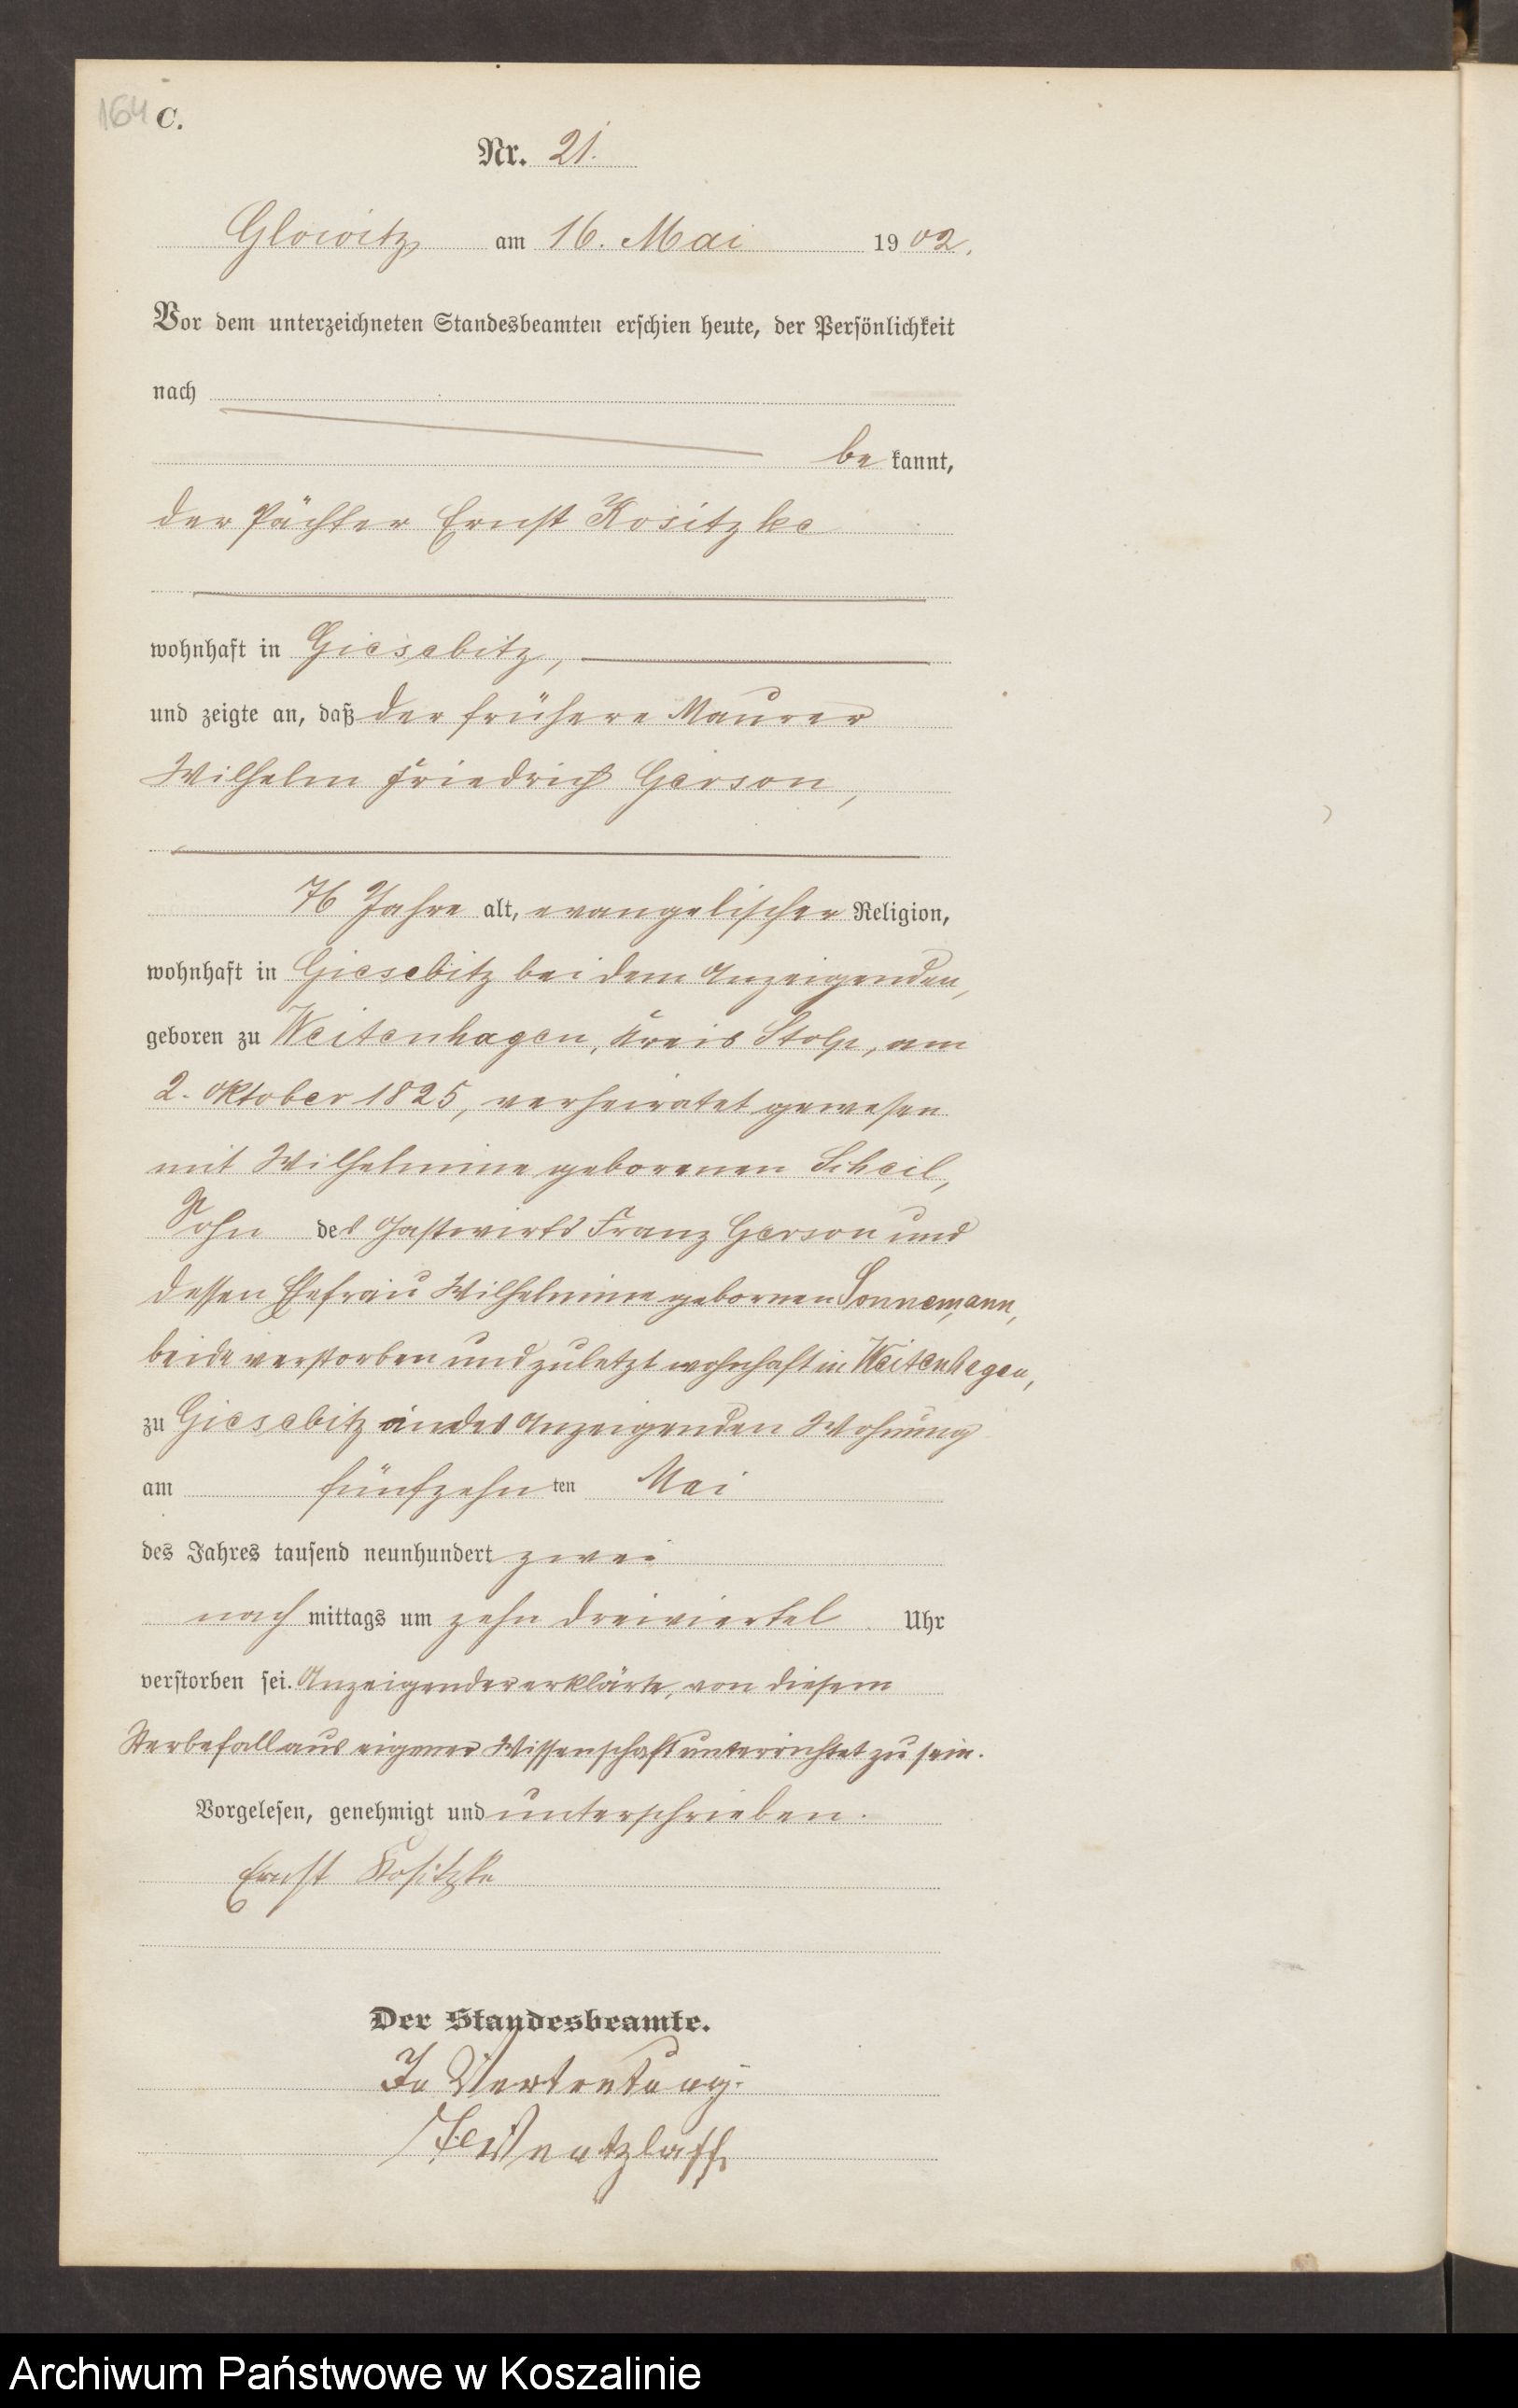 164 C.
Nr. 21.
Glowitz am 16. Mai 1902.
Vor dem unterzeichneten Standesbeamten erschien heute, der Persönlichkeit
nach
be kannt,
der Pächter Ernst Kositzke
wohnhaft in Giesebitz,
und zeigte an, daß der frühere Maurer
Wilhelm Friedrich Gerson,
76 Jahre alt, evangelischer Religion,
wohnhaft in Giesebitz bei dem Anzeigenden,
geboren zu Weitenhagen, Kreis Stolp, am
2. Oktober 1825, verheiratet gewesen
mit Wilhelmine geborenen Scheil,
Sohn des Gastwirts Franz Gerson und
dessen Ehefrau Wilhelmine gebornen Sonnemann,
beide verstorben und zuletzt wohnhaft in Weitenhagen,
zu Giesebitz in des Anzeigenden Wohnung
am fünfzehn ten Mai
des Jahres tausend neunhundert zwei
nach mittags um zehn dreiviertel Uhr
verstorben sei. Anzeigender erklärte, von diesem
Sterbefall aus eigener Wissenschaft unterrichtet zu sein.
Vorgelesen, genehmigt und unterschrieben.
Ernst Kositzke
Der Standesbeamte.
In Vertretung:
Wentzlaff
Archiwum Państwowe w Koszalinie